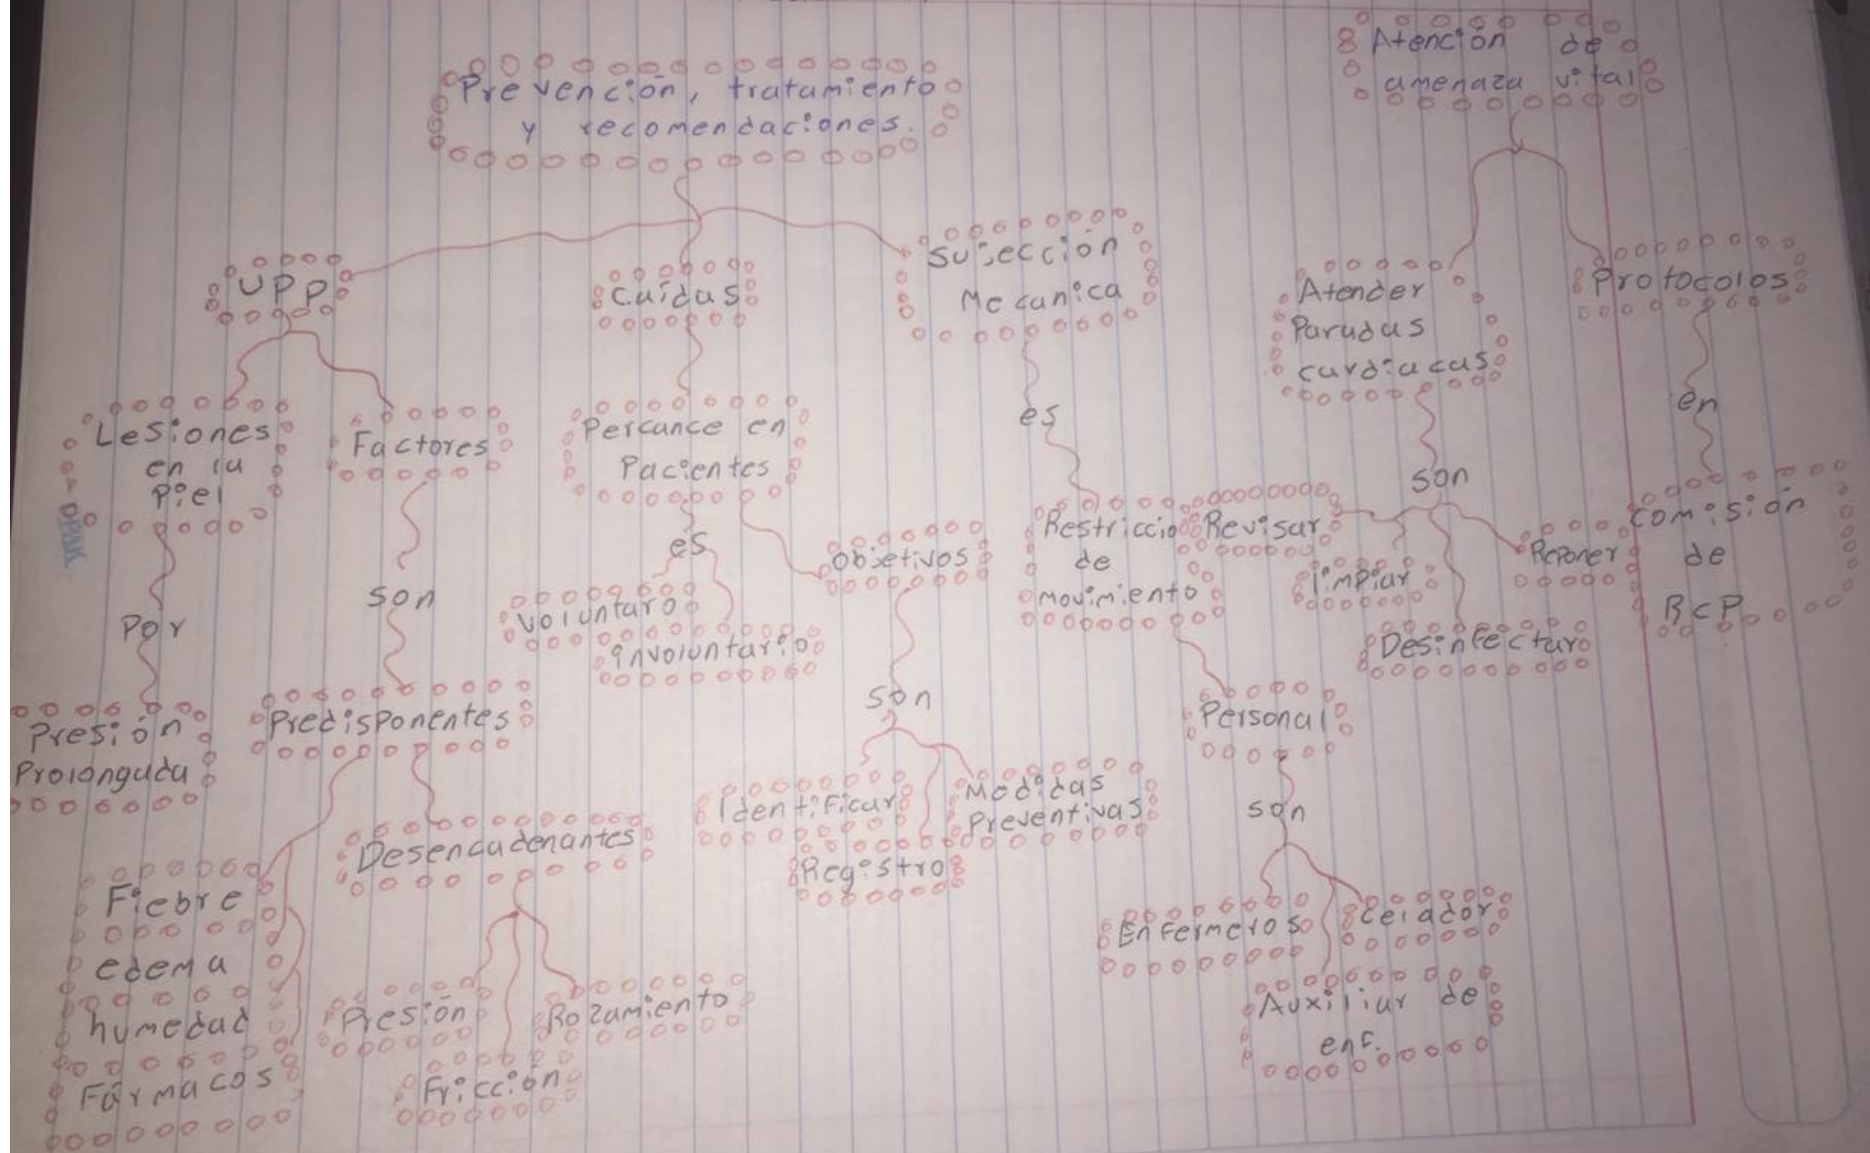 Prevención, tratamiento
y recomendaciones.
UPP
Lesiones
en la
Piel
Por
Presión
Prolongada
Factores
son
Predisponentes
Fiebre
edema
humedad
Fármacos
Desencadenantes
Presión
Fricción
Rozamiento
Caídas
Percance en
Pacientes
es
Voluntaro
involuntario
Objetivos
son
Identificar
Registro
Medidas
Preventivas
Sujección
Mecanica
es
Restriccio
de
movimiento
Personal
son
Enfermeros
Auxiliar de
enf.
Celador
Atención de
amenaza vital
Atender
Paradas
cardiacas
son
Revisar
limpiar
Desinfectar
Reponer
Protocolos
en
comisión
de
RCP